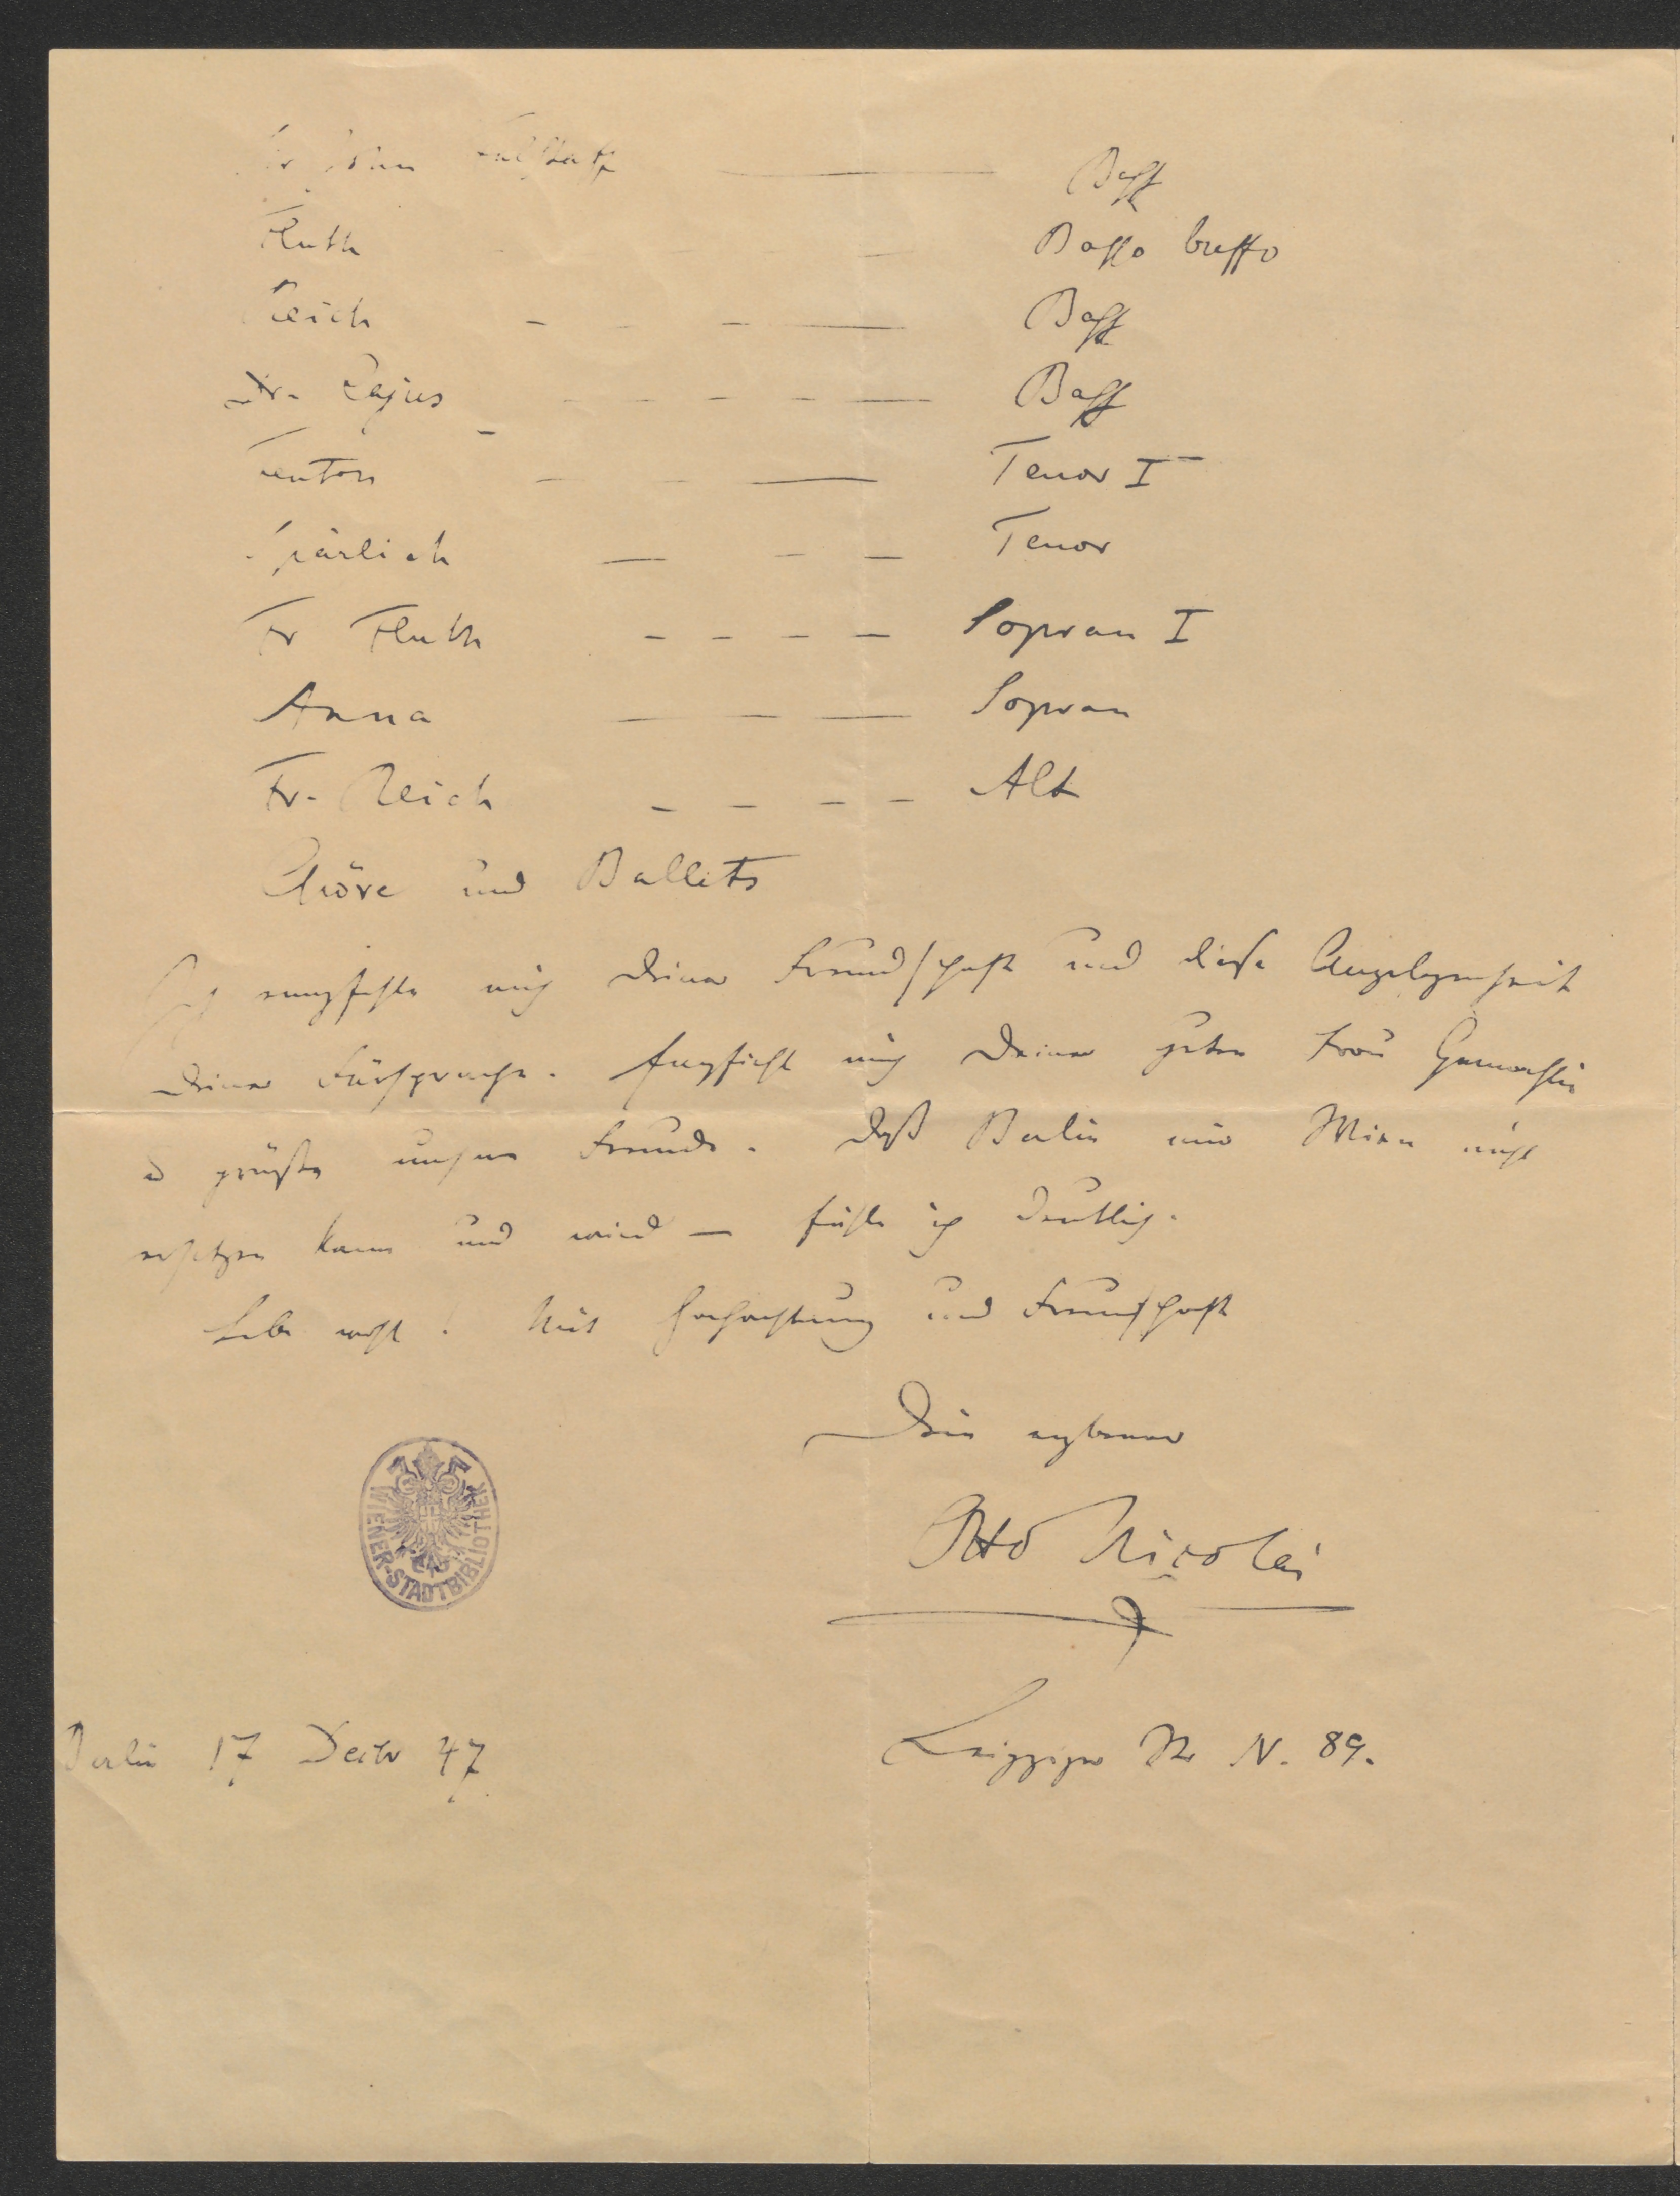 Sir John Fallstaff ——— Baff
Fluth — — Baffo buffo
Reich — — — —— Baff
Dr. Cajus — — — — —— Baff
Fenton — — —— Tenor I
Spärlich — — — Tenor
Fr Fluth — — — — Sopran I
Anna — — — Sopran
Fr. Reich — — — — Alt
Chöre und Ballets
Ich empfehle mich Deiner Freundschaft und diese Angelegenheit
Deiner Fürsprache. Empfiehl mich Deiner guten Frau Gemahlin
u grüße unsere Freunde. Daß Berlin mir Wien nicht
ersetzen kann und wird — fühle ich deutlich.
Lebe wohl! Mit Hochachtung und Freundschaft
Dein ergebener
Otto Nicolai
WIENER-STADTBIBLIOTHEK
Berlin 17 Decbr 47
Leipziger Str N. 89.